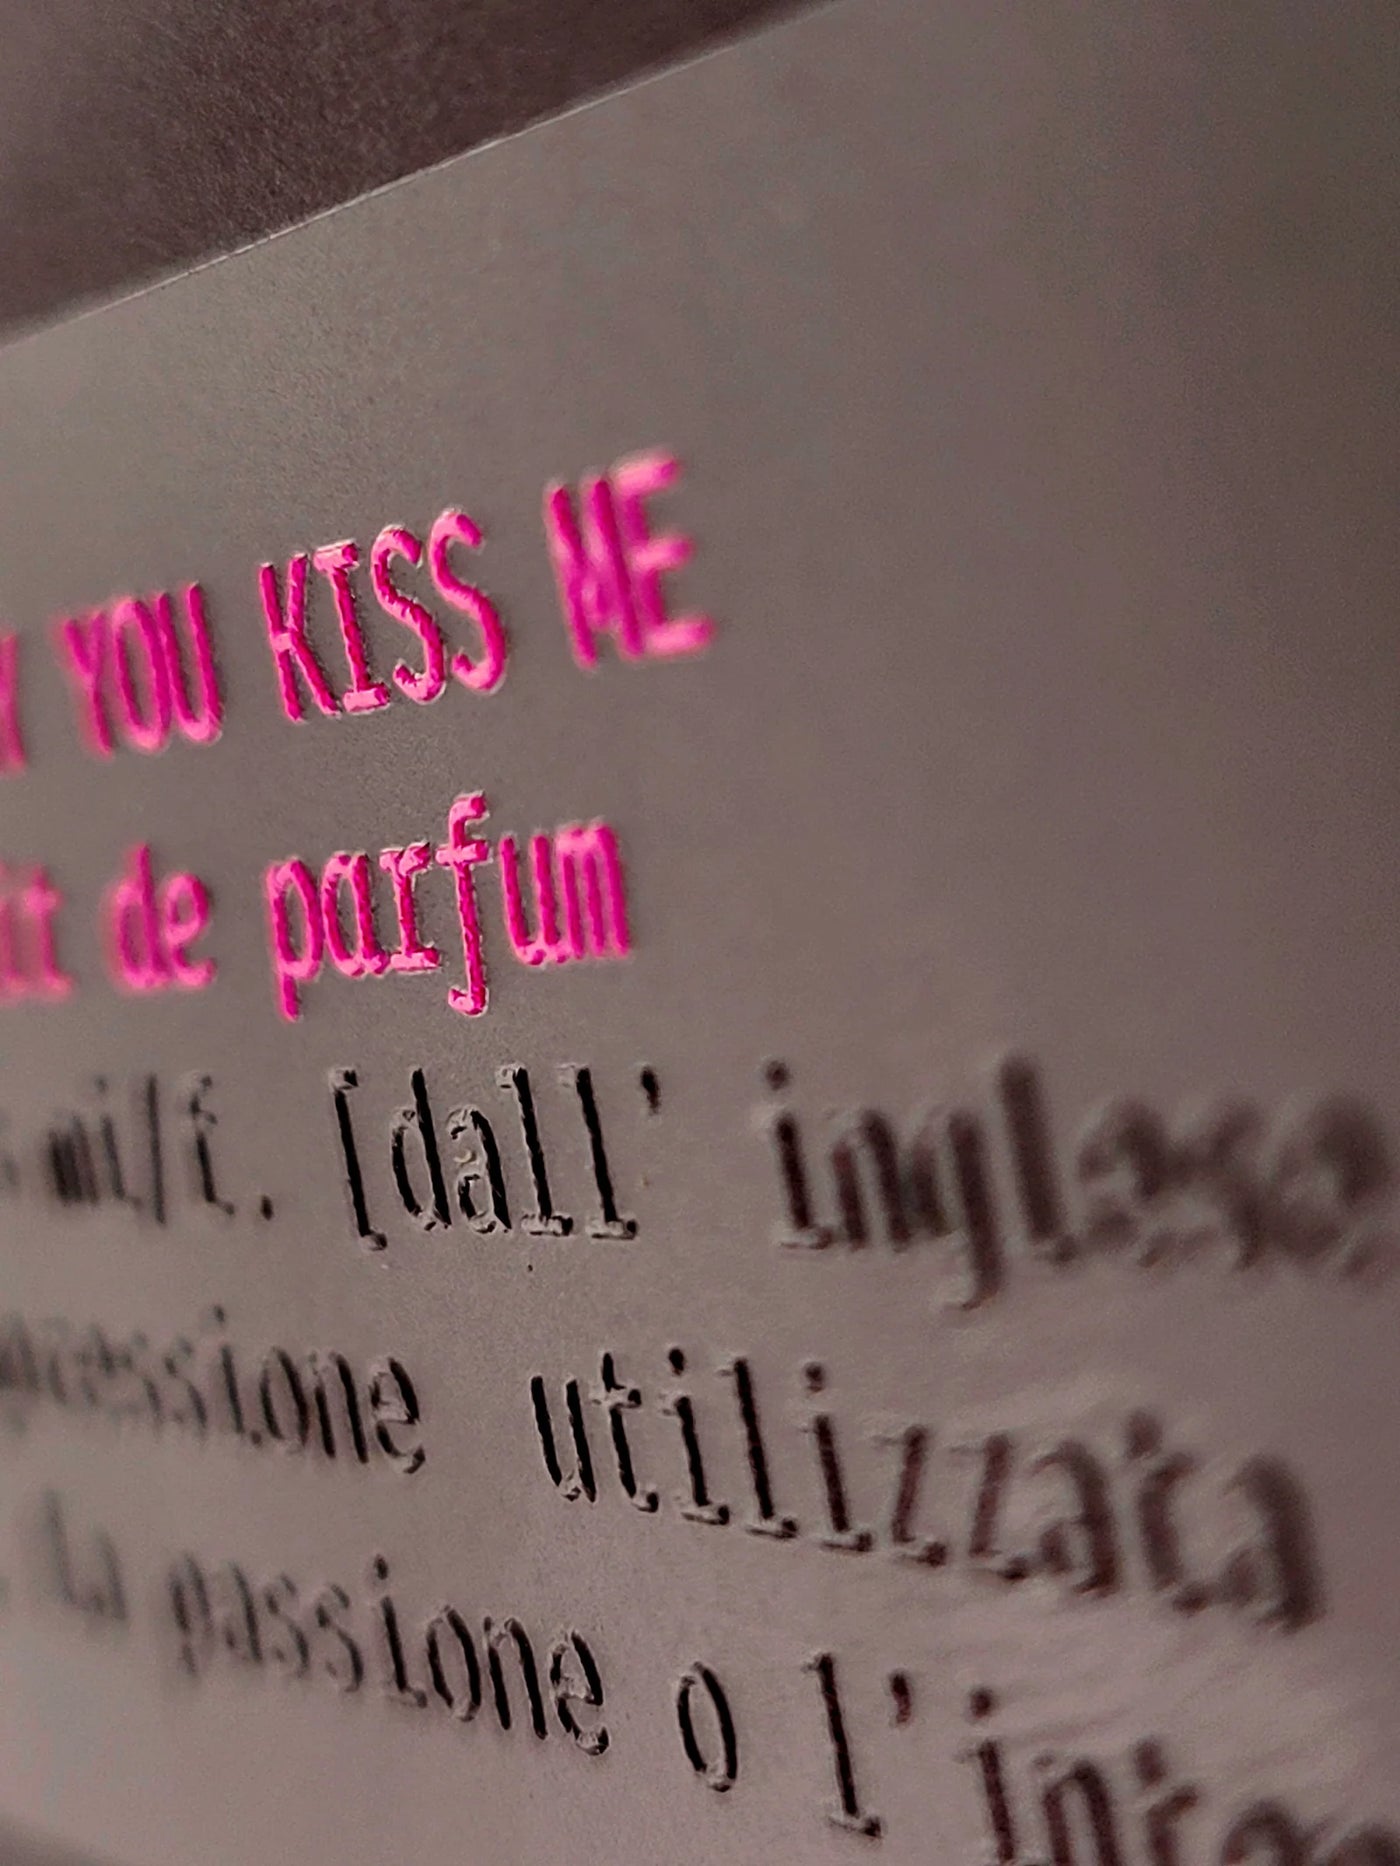 YOU KISS ME
de parfum
mi/f. [dall' inglese
utilizzata
la passione o l'